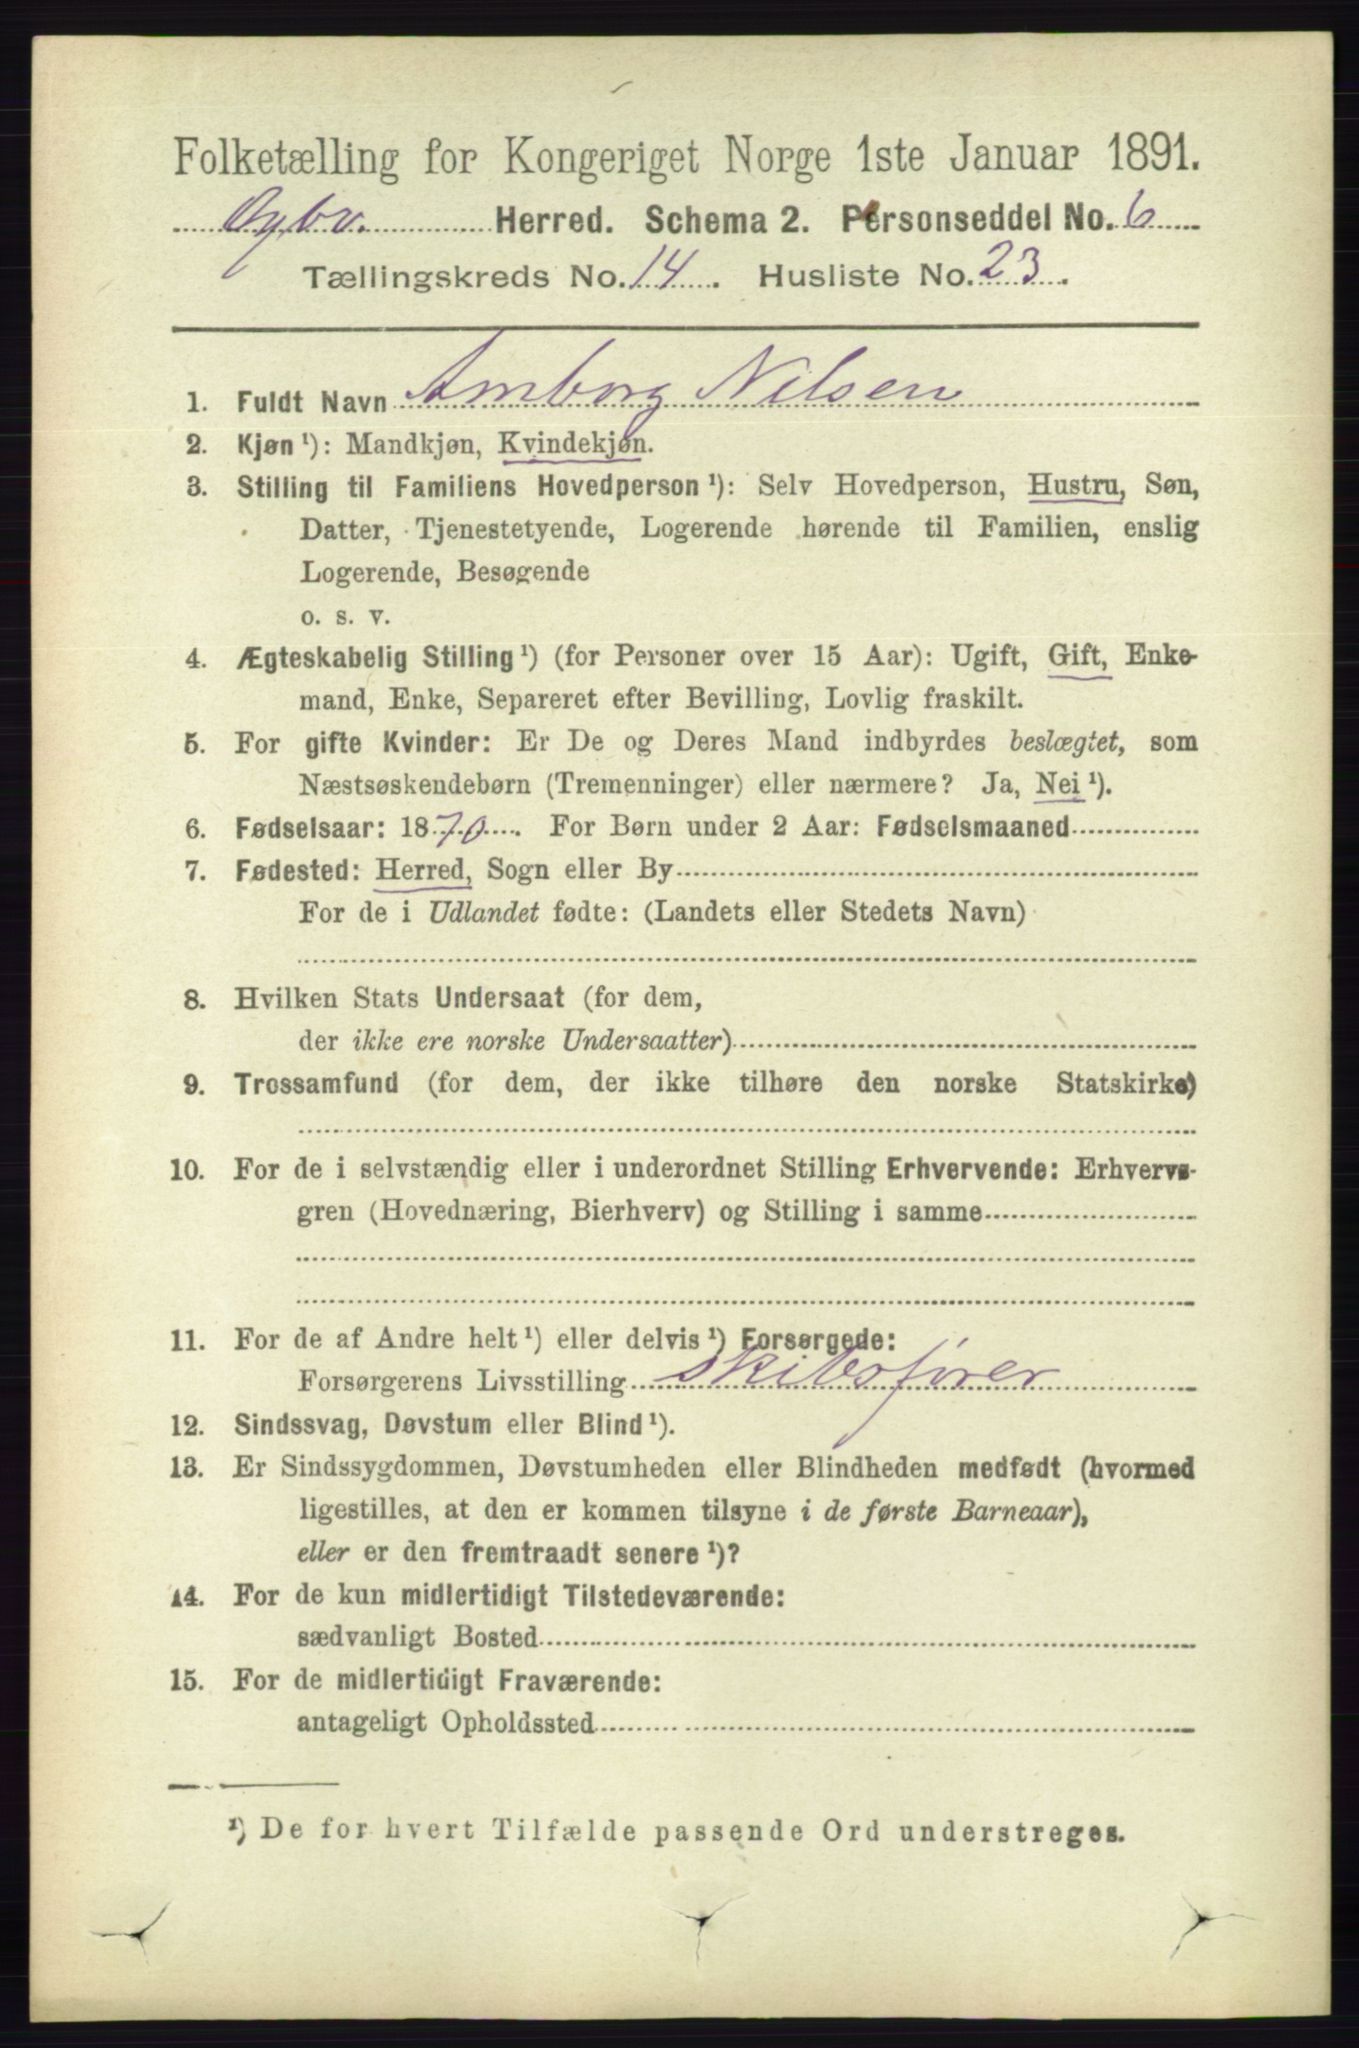 Folketælling for Kongeriget Norge 1ste Januar 1891.
Herred. Schema 2. Personseddel No. 6
Tællingskreds No. 14. Husliste No. 23.
1. Fuldt Navn Amborg Nilsen
2. Kjøn ¹): Mandkjøn, Kvindekjøn.
3. Stilling til Familiens Hovedperson ¹): Selv Hovedperson, Hustru, Søn,
Datter, Tjenestetyende, Logerende hørende til Familien, enslig
Logerende, Besøgende
o. s. v.
4. Ægteskabelig Stilling ¹) (for Personer over 15 Aar): Ugift, Gift, Enke-
mand, Enke, Separeret efter Bevilling, Lovlig fraskilt.
5. For gifte Kvinder: Er De og Deres Mand indbyrdes beslægtet, som
Næstsøskendebørn (Tremenninger) eller nærmere? Ja, Nei ¹).
6. Fødselsaar: 1870. For Børn under 2 Aar: Fødselsmaaned
7. Fødested: Herred, Sogn eller By
For de i Udlandet fødte: (Landets eller Stedets Navn)
8. Hvilken Stats Undersaat (for dem,
der ikke ere norske Undersaatter)
9. Trossamfund (for dem, der ikke tilhøre den norske Statskirke)
10. For de i selvstændig eller i underordnet Stilling Erhvervende: Erhvervs-
gren (Hovednæring, Bierhverv) og Stilling i samme
11. For de af Andre helt ¹) eller delvis ¹) Forsørgede:
Forsørgerens Livsstilling skibsfører
12. Sindssvag, Døvstum eller Blind ¹).
13. Er Sindssygdommen, Døvstumheden eller Blindheden medfødt (hvormed
ligestilles, at den er kommen tilsyne i de første Barneaar),
eller er den fremtraadt senere ¹)?
14. For de kun midlertidigt Tilstedeværende:
sædvanligt Bosted
15. For de midlertidigt Fraværende:
antageligt Opholdssted
¹) De for hvert Tilfælde passende Ord understreges.